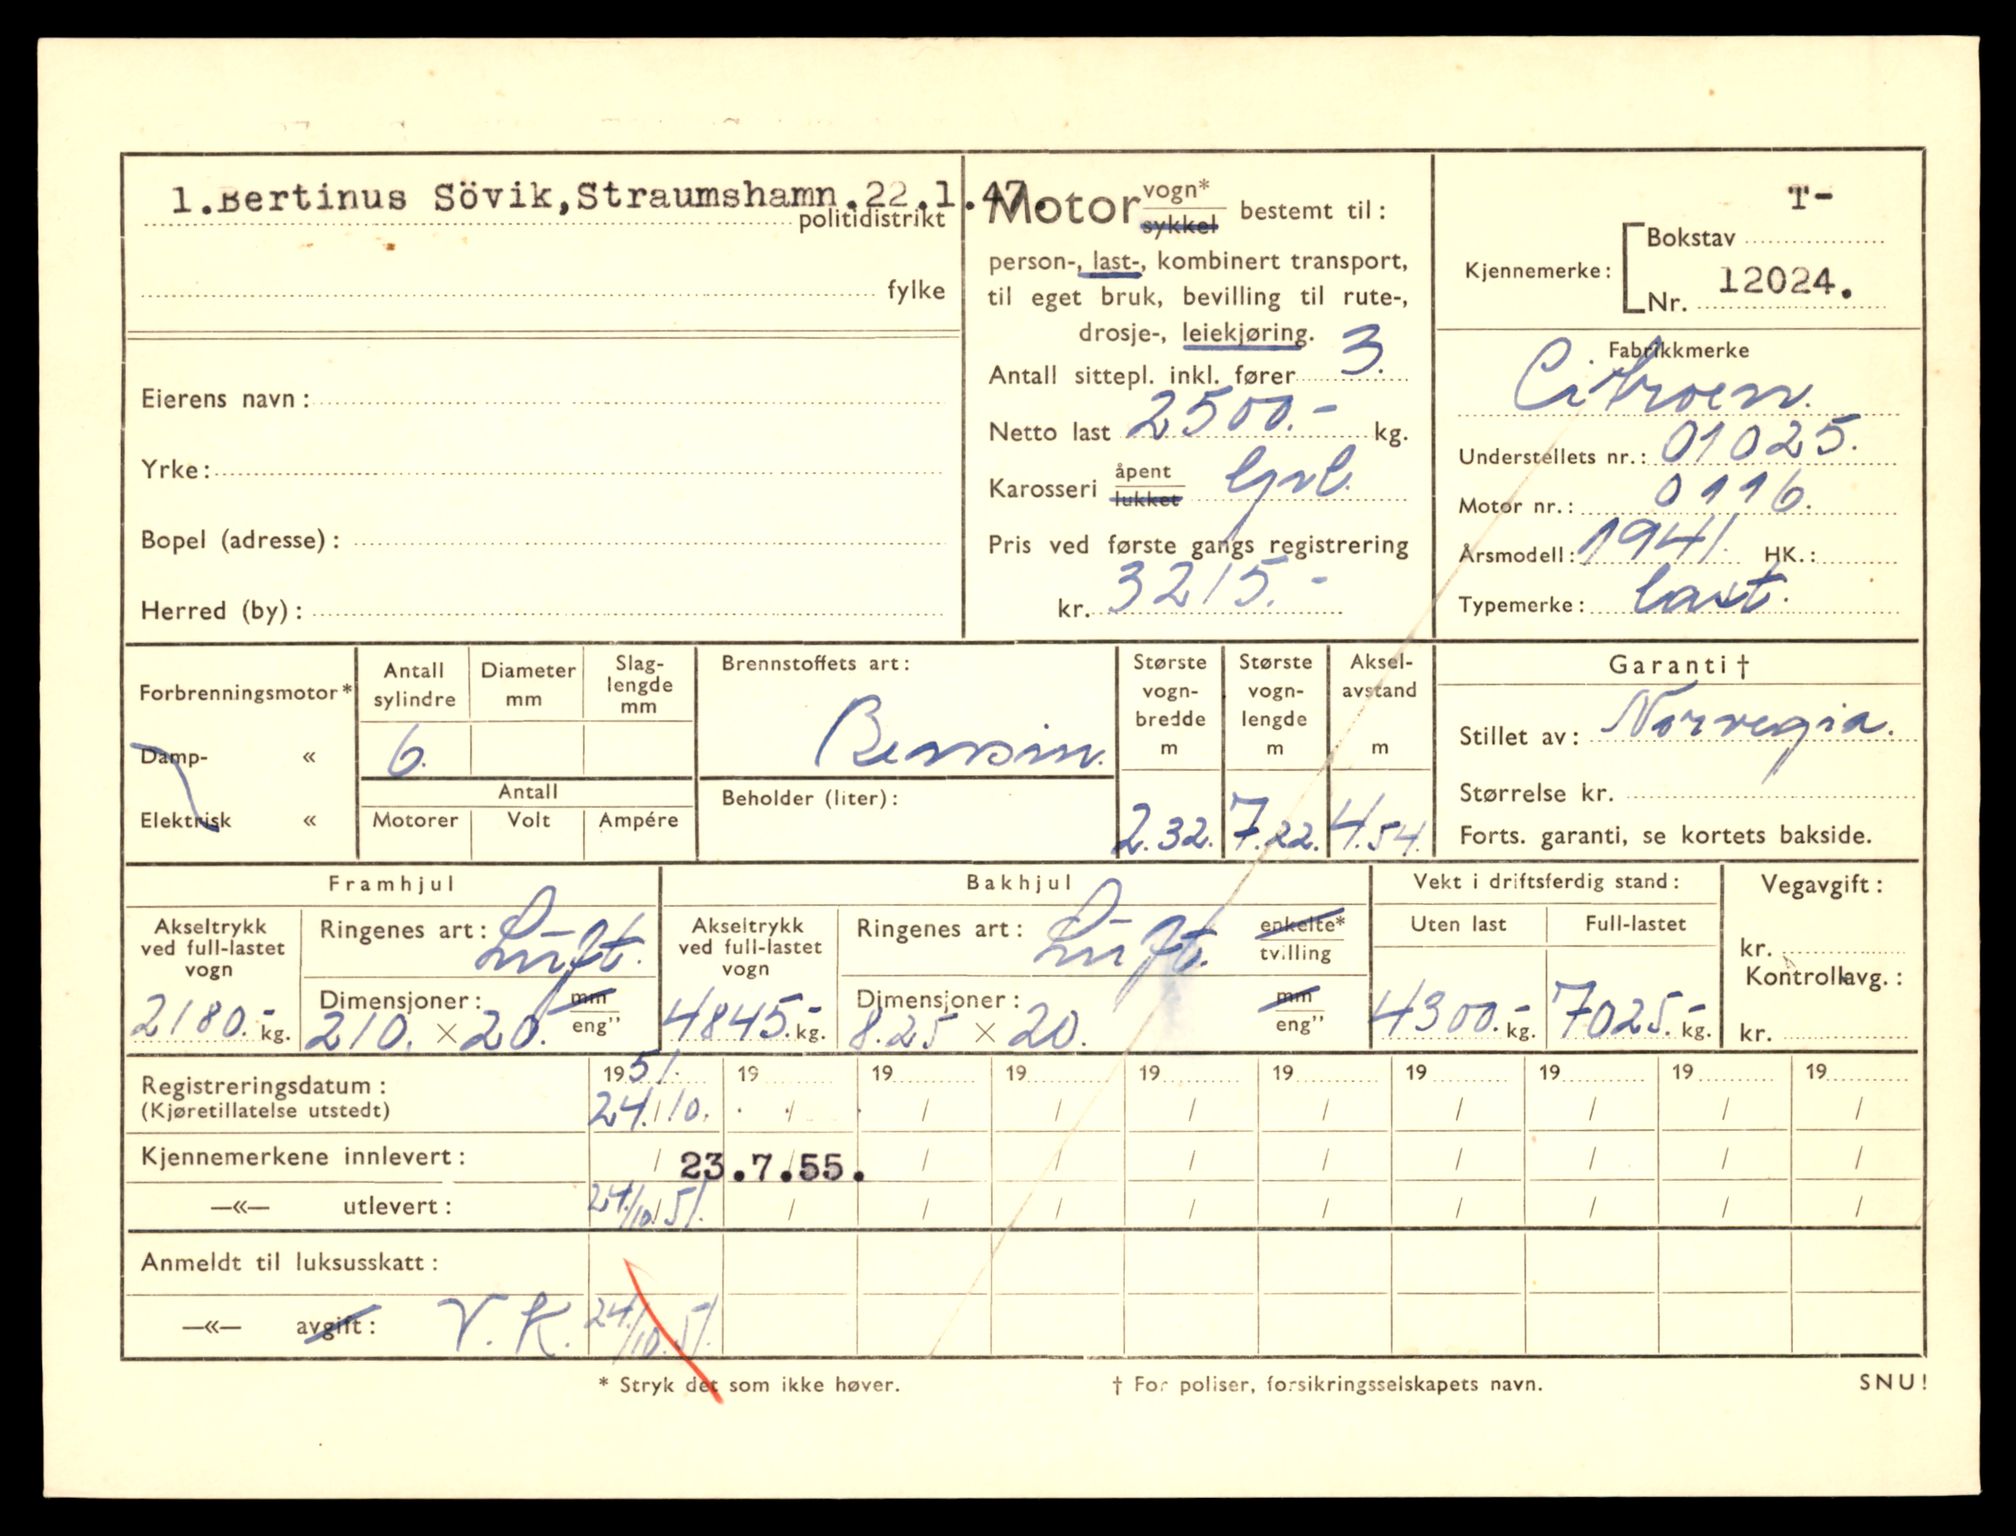 1.Bertinus Sövik,Straumshamn.22.1.47.
politidistrikt
fylke
Eierens navn :
Yrke :
Bopel (adresse) :
Herred (by) :
Motor vogn* sykkel bestemt til :
person-, last-, kombinert transport,
til eget bruk, bevilling til rute-,
drosje-, leiekjøring.
Antall sittepl. inkl. fører 3.
Netto last 2500.- kg.
Karosseri åpent lukket
Pris ved første gangs registrering
kr. 3215.-
T-
Kjennemerke : Bokstav
Nr. 12024.
Fabrikkmerke
Citroen.
Understellets nr. : 01025.
Motor nr. : 0116.
Årsmodell : 1941. HK. :
Typemerke : last.
Forbrenningsmotor*
Damp- «
Elektrisk «
Antall sylindre
Diameter mm
Slag-lengde mm
6.
Antall
Motorer Volt Ampére
Brennstoffets art :
Bensin.
Beholder (liter) :
Største vogn-bredde m
2.32.
Største vogn-lengde m
7.22.
Aksel-avstand m
4.54.
Garanti †
Stillet av : Norvegia.
Størrelse kr.
Forts. garanti, se kortets bakside.
Framhjul
Akseltrykk ved full-lastet vogn
2180.- kg.
Ringenes art : Luft.
Dimensjoner : mm eng”
210. × 20.
Bakhjul
Akseltrykk ved full-lastet vogn
4845.- kg.
Ringenes art : Luft. enkelte* tvilling
Dimensjoner : mm eng”
8.25 × 20.
Vekt i driftsferdig stand :
Uten last Full-lastet
4300.- kg. 7025.- kg.
Vegavgift :
kr.
Kontrollavg. :
kr.
Registreringsdatum : 1951. 19 19 19 19 19 19 19 19 19
(Kjøretillatelse utstedt) 24./10. / / / / / / / / /
Kjennemerkene innlevert : / 23.7.55. / / / / / / / /
—«— utlevert : 24./10.51. / / / / / / / / /
Anmeldt til luksusskatt :
—«— avgift : V. K. 24./10.51.
* Stryk det som ikke høver.
† For poliser, forsikringsselskapets navn.
SNU!